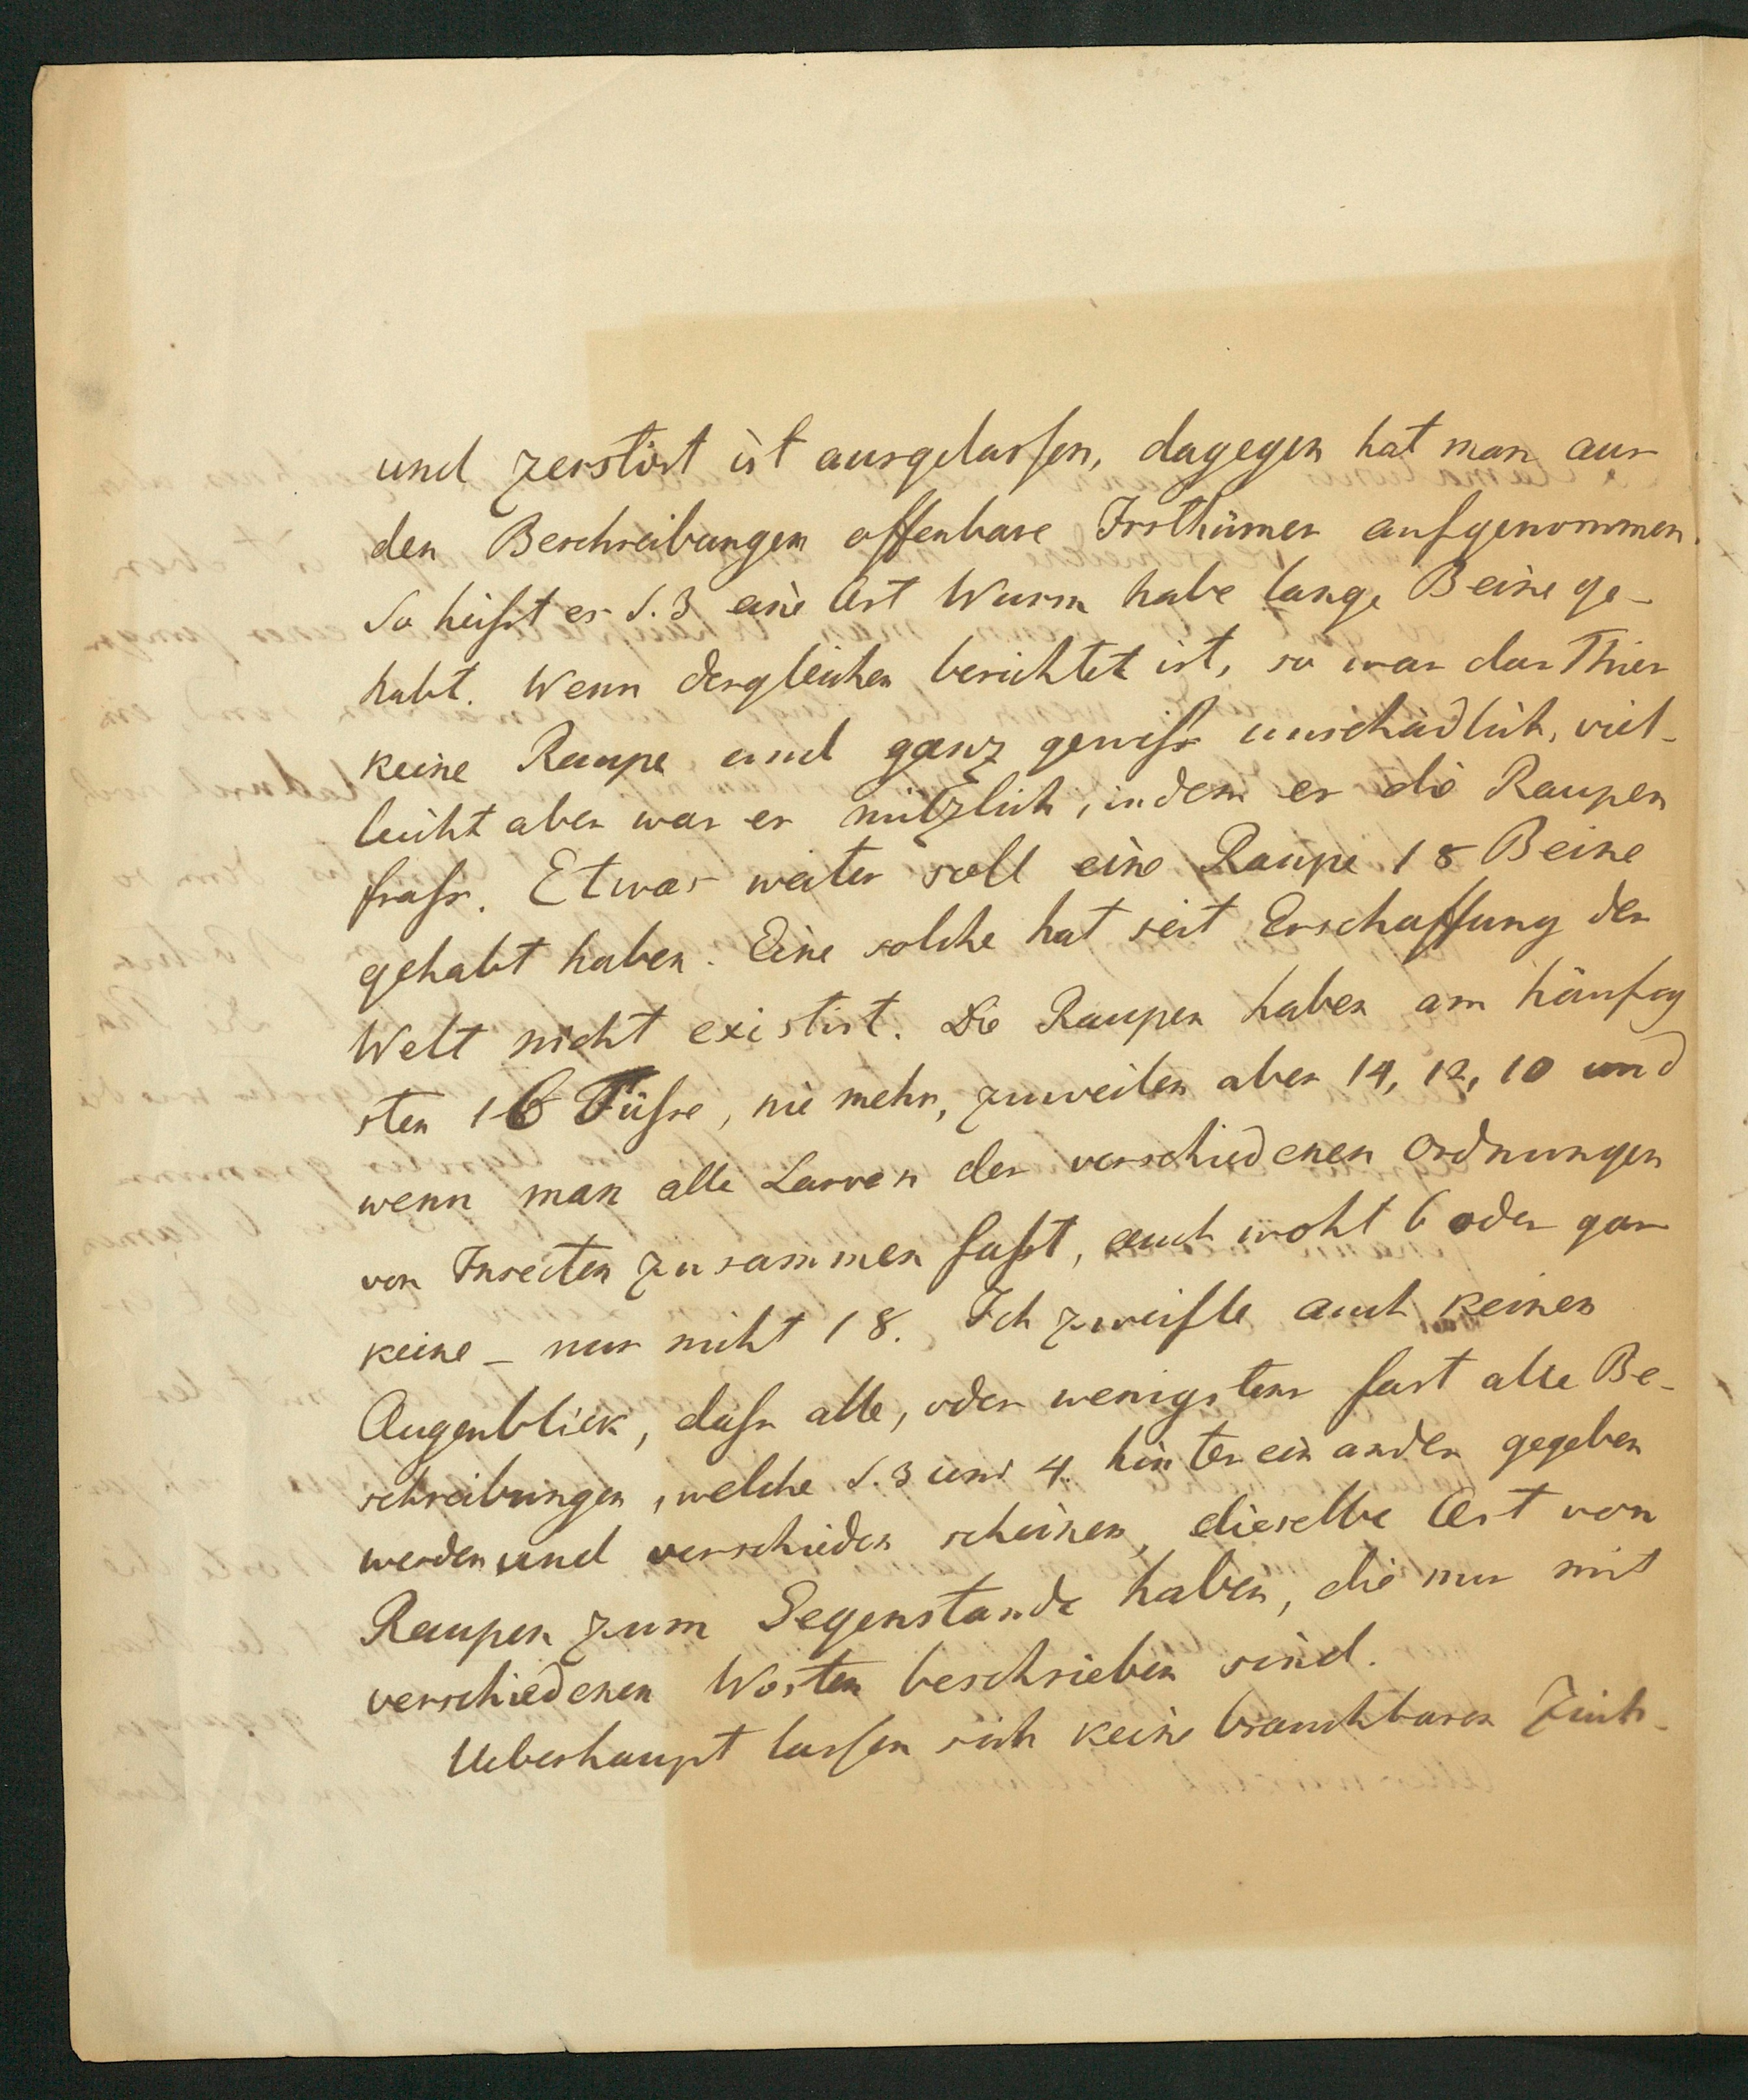 und zerstört ist ausgelassen, dagegen hat man aus
den Beschreibungen offenbare Irrthümer aufgenommen.
So heißt es S. 3 eine Art Wurm habe lange Beine ge-
habt. Wenn dergleichen berichtet ist, so war das Thier
keine Raupe und ganz gewiss unschädlich, viel-
leicht aber war es nützlich, indem es die Raupen
frass. Etwas weiter soll eine Raupe 18 Beine
gehabt haben. Eine solche hat seit Erschaffung der
Welt nicht existirt. Die Raupen haben am häufig
sten 16 Füsse, nie mehr, zuweilen aber 14, 12, 10 und
wenn man alle Larven der verschiedenen Ordnungen
von Insecten zusammen fasst, auch wohl 6 oder gar
keine – nur nicht 18. Ich zweifle auch keinen
Augenblick, dass alle, oder wenigstens fast alle Be-
schreibungen, welche S. 3 und 4. hinter einander gegeben
werden und verschieden scheinen, dieselbe Art von
Raupen zum Gegenstande haben, die nur mit
verschiedenen Worten beschrieben sind.
Ueberhaupt lassen sich keine brauchbaren